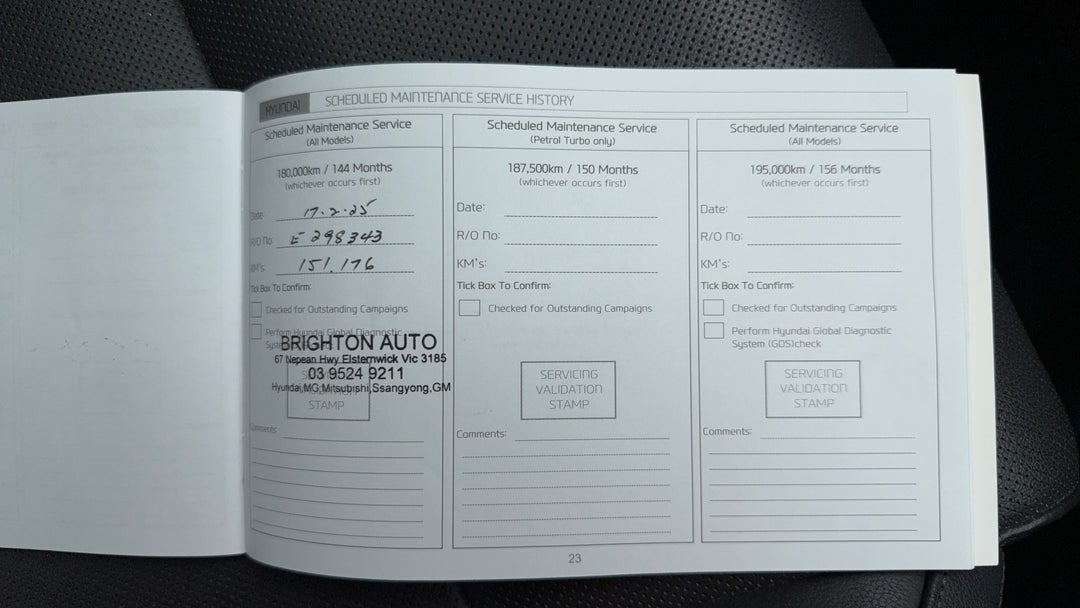 HYUNDAI SCHEDULED MAINTENANCE SERVICE HISTORY
Scheduled Maintenance Service
(All Models)
180,000km / 144 Months
(whichever occurs first)
Date: 17.2.25
R/O No: E 298343
KM's: 151,176
Tick Box To Confirm:
Checked for Outstanding Campaigns
Perform Hyundai Global Diagnostic
BRIGHTON AUTO
67 Nepean Hwy Elsternwick Vic 3185
03 9524 9211
Hyundai,MG,Mitsubishi,Ssangyong,GM
STAMP
Comments:
Scheduled Maintenance Service
(Petrol Turbo only)
187,500km / 150 Months
(whichever occurs first)
Date:
R/O No:
KM's:
Tick Box To Confirm:
Checked for Outstanding Campaigns
SERVICING
VALIDATION
STAMP
Comments:
Scheduled Maintenance Service
(All Models)
195,000km / 156 Months
(whichever occurs first)
Date:
R/O No:
KM's:
Tick Box To Confirm:
Checked for Outstanding Campaigns
Perform Hyundai Global Diagnostic
System (GDS)check
SERVICING
VALIDATION
STAMP
Comments:
23